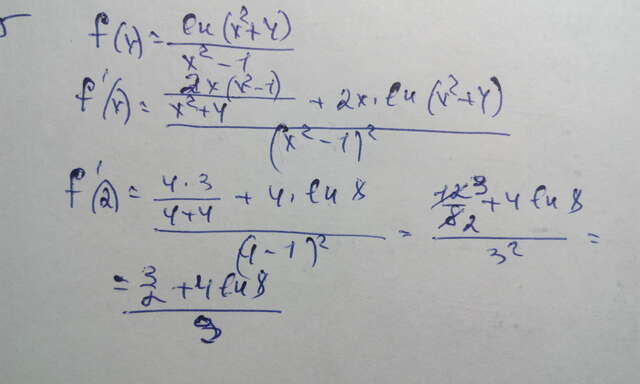 f(x) = ln(x²+4) / x²-1
f'(x) = (2x(x²-1) / x²+4 + 2x · ln(x²+4)) / (x²-1)²
f'(2) = (4·3 / 4+4 + 4 · ln 8) / (4-1)² = (12 3 / 8 2 + 4 ln 8) / 3² =
= (3/2 + 4 ln 8) / 9